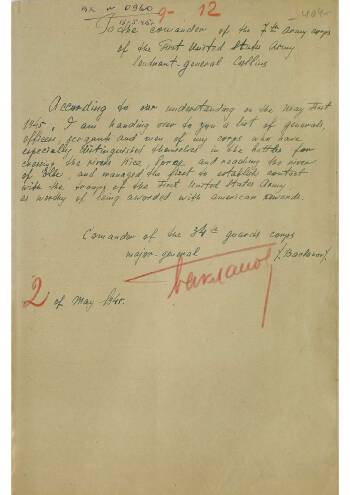 вх N 0960
15/5.45г.
9- 12
To the comander of the 7th Army corps
of the First United States Army
leutnant-general Collins
According to our understanding on the May First
1945, I am handing over to you a list of generals,
officers, sergants and men of my corps who have
especially distinguished themselves in the battles for
crossing the rivers Nice, Spree, and reaching the river
of Elbe, and managed the first to establish contact
with the troops of the First United States Army
as worthy of being awarded with american rewards.
Comander of the 34th guards corps
major-general /Baklanov/
Бакланов
2 of May 1945.